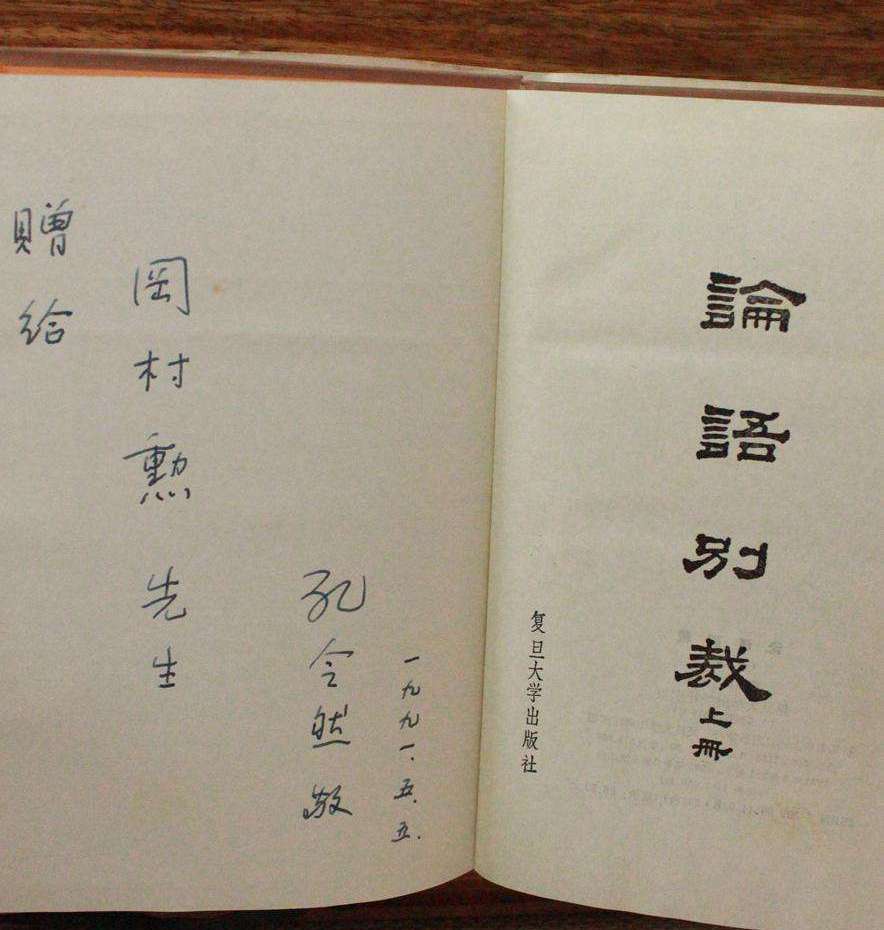 赠给
岡村勲先生
孔令然敬
一九九一.五.五.
論語別裁
上册
复旦大学出版社